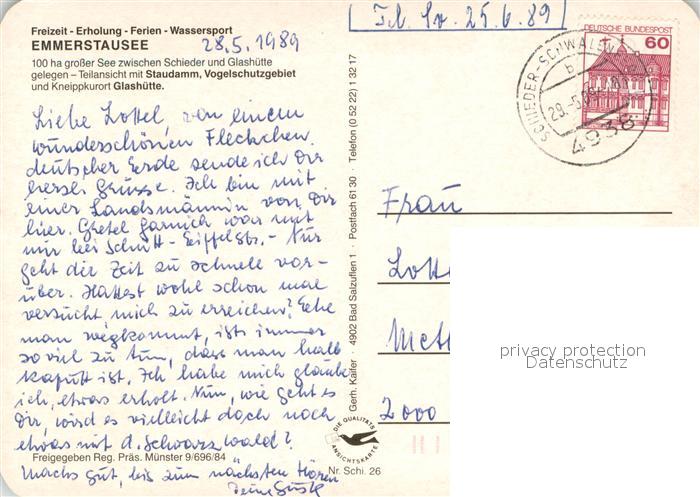 Freizeit - Erholung - Ferien - Wassersport
EMMERSTAUSEE 28.5.1989
100 ha großer See zwischen Schieder und Glashütte
gelegen – Teilansicht mit Staudamm, Vogelschutzgebiet
und Kneippkurort Glashütte.
Liebe Lottel, von einem
wunderschönen Fleckchen
deutscher Erde sende ich Dir
herzl. Grüsse. Ich bin mit
einer Landsmännin von Dir
hier. Gretel Garnich war mit
mir bei Schütt - Eiffelstr. - Nur
geht die Zeit zu schnell vor-
über. Hattest wohl schon mal
versucht mich zu erreichen? Ehe
man wegkommt, ists immer
soviel zu tun, dass man halb
kaputt ist. Ich habe mich glaube
ich, etwas erholt. Nun, wie geht es
Dir, wird es vielleicht doch noch
etwas mit d. Schwarzwald?
Freigegeben Reg. Präs. Münster 9/696/84
Machs gut, bis zum nächsten Hören
Deine
Gerh. Kaifer · 4902 Bad Salzuflen 1 · Postfach 61 30 · Telefon (0 52 22) 1 32 17
DIE QUALITÄTS
ANSICHTSKARTE
Nr. Schi. 26
25.6.89
DEUTSCHE BUNDESPOST
60
SCHIEDER-SCHWALEN
b
29.-5.89
4938
Frau
Lott
Mett
2000
privacy protection
Datenschutz